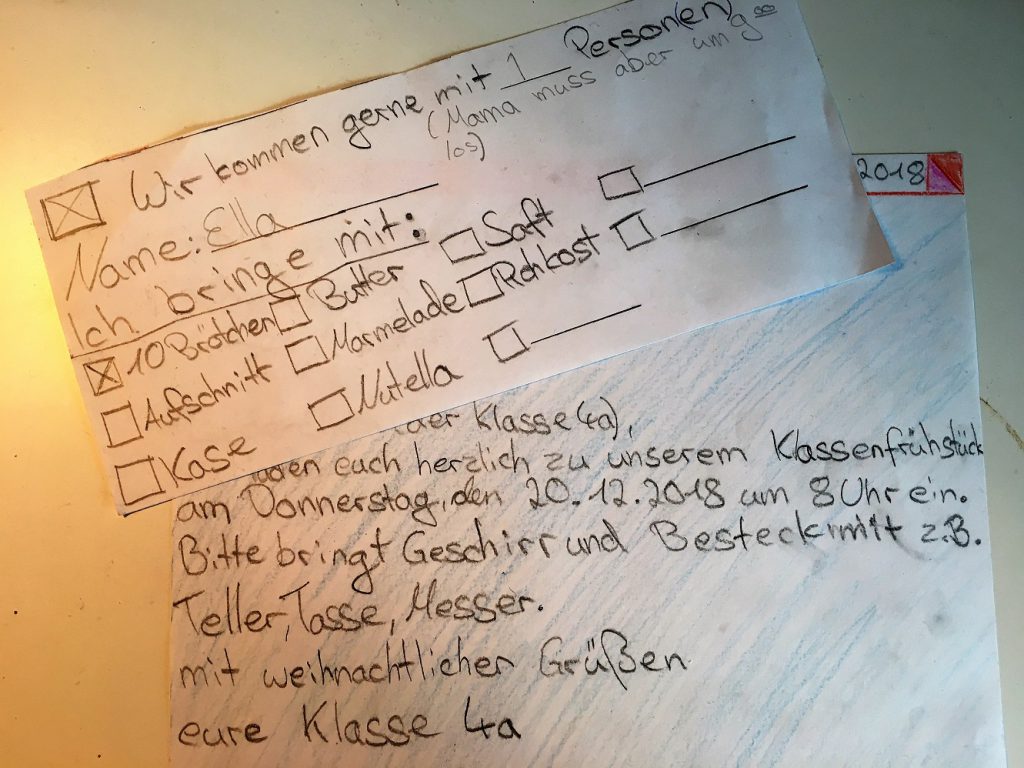 ☒ Wir kommen gerne mit 1 Person(en)
(Mama muss aber um 9 00
los)
Name: Ella
Ich bringe mit:
☒ 10 Brötchen ☐ Butter ☐ Saft ☐
☐ Aufschnitt ☐ Marmelade ☐ Rohkost ☐
☐ Käse ☐ Nutella ☐
2018
der Klasse (4a),
euch herzlich zu unserem Klassenfrühstück
am Donnerstag, den 20.12.2018 um 8 Uhr ein.
Bitte bringt Geschirr und Besteck mit z.B.
Teller, Tasse, Messer.
mit weihnachtlicher Grüßen
eure Klasse 4a